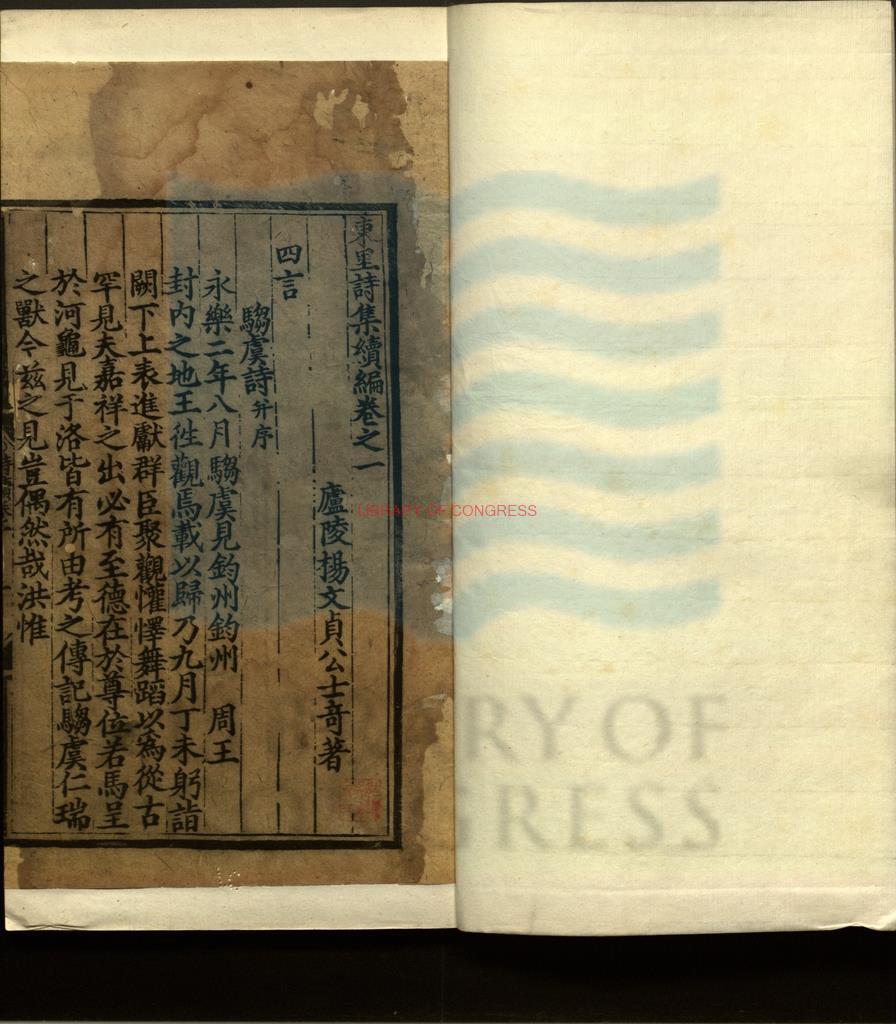 東里詩集續編卷之一
廬陵楊文貞公士奇著
四言
騶虞詩并序
永樂二年八月騶虞見鈞州鈞州 周王
封內之地王徃觀焉載以歸乃九月丁未躬詣
闕下上表進獻群臣聚觀懽懌舞蹈以為從古
罕見夫嘉祥之出必有至德在於尊位若馬呈
於河龜見于洛皆有所由考之傳記騶虞仁瑞
之獸今兹之見豈偶然哉洪惟
LIBRARY OF CONGRESS
RY OF
GRESS